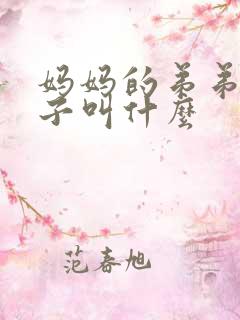 妈妈的弟弟
子叫什麼
范春旭